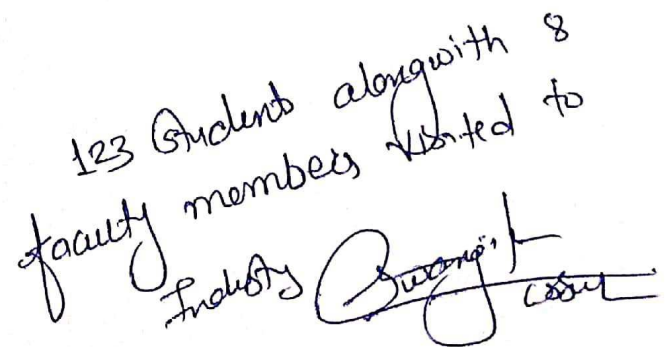 123 Students alongwith 8
faculty members visited to
Industry